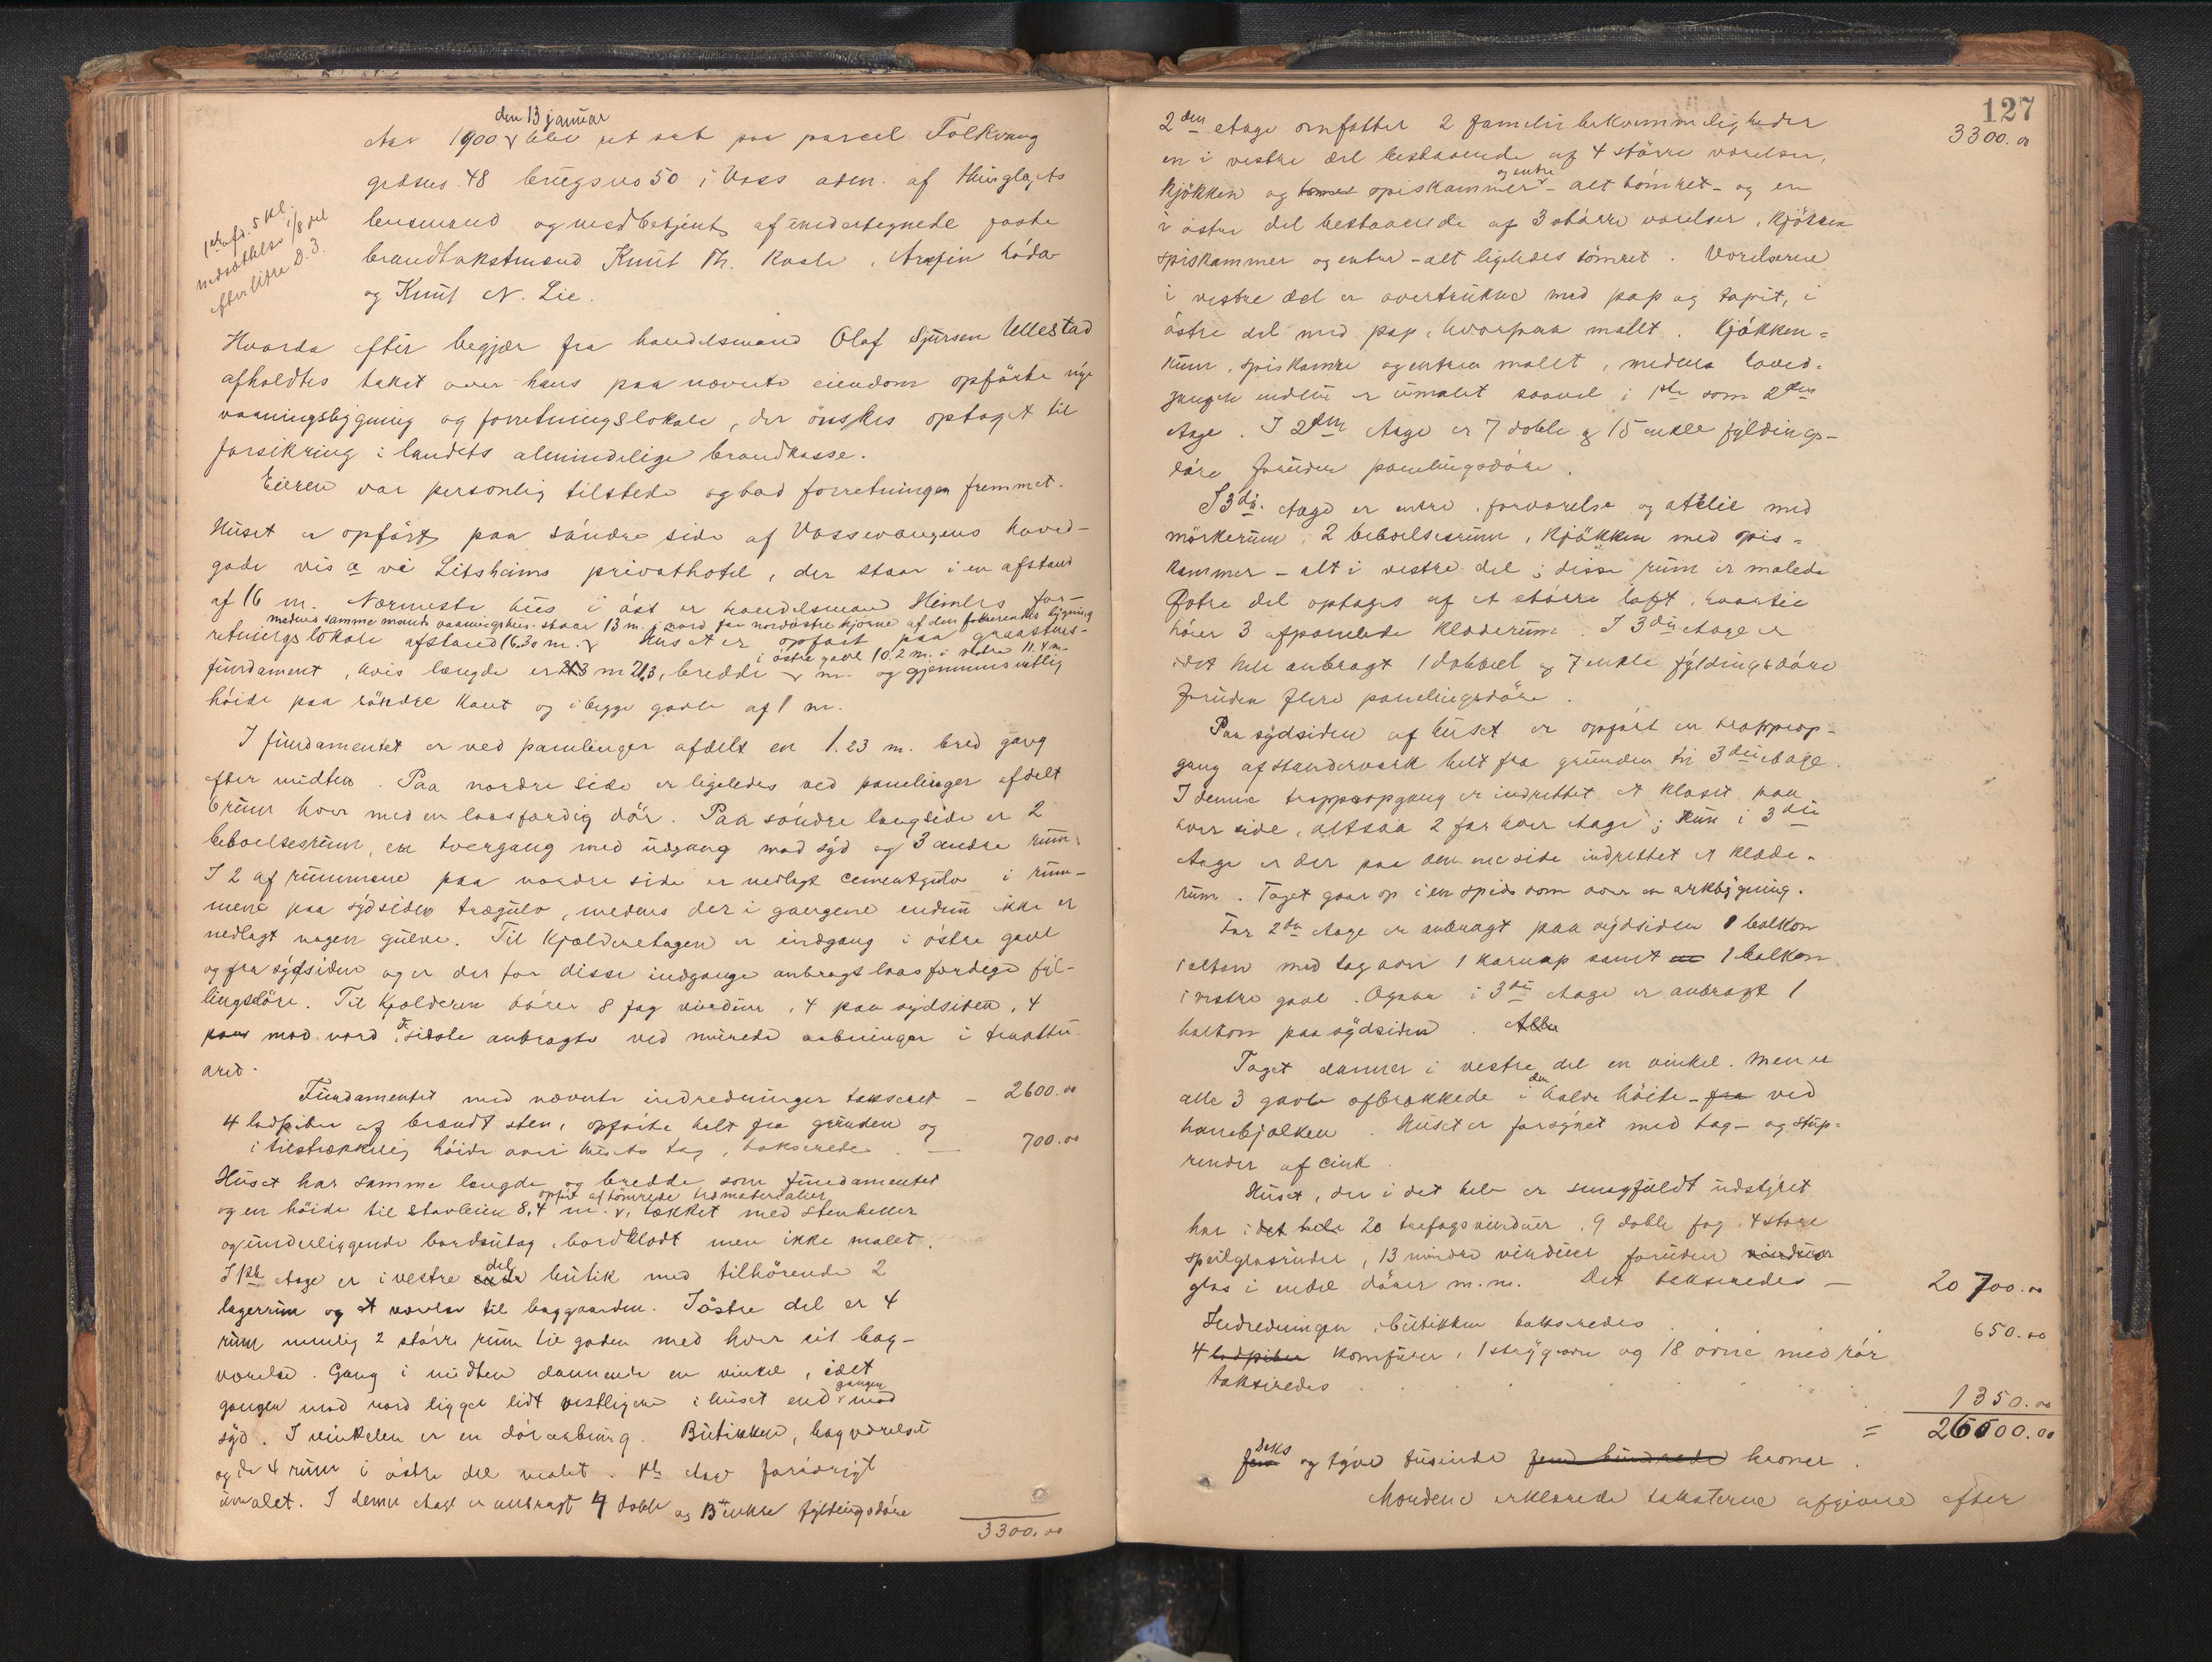 den 13 januar
Aar 1900 blev ret sat paa parcel Folkvang
gdsno. 48 brugsno 50 i Voss adm. af thinglagets
lensmand og medbetjent af undertegnede faste
brandtakstmænd Knut Th. Kaale, Arnfin
og Knut N. Lie.
1ste afd. 5 kl.
nedsættelse 1/8 del
efter litra D. 3.
Hvorda efter begjær fra handelsmand Olaf Sjursen Ullestad
afholdtes takst over hans paa nævnte eiendom opførte nye
vaaningsbygning og forretningslokale, der ønskes optaget til
forsikring i landets almindelige brandkasse.
Eieren var personlig tilstede og bad forretningen fremmet.
Huset er opført paa søndre side af Vossevangens hoved-
gade vis a vi Litsheims privathotel, der staar i en afstand
af 16 m. Nærmeste hus i øst er handelsmand Himles for-
medens samme mands vaaningshus staar 13 m. i nord for nordøstre hjørne af den bygning
retningslokale afstand 16.30 m. Huset er opført paa graastens-
i østre gavl 10.2 m. i vestre 11.4 m.
fundament, hvis længde er 21.3, bredde m. og gjennemsnitlig
høide paa søndre kant og i begge gavle af 1 m.
I fundamentet er ved panelinger afdelt en 1.23 m. bred gang
efter midten. Paa nordre side er ligeledes ved panelinger afdelt
6 rum hver med en laasfærdig dør. Paa søndre langside er 2
beboelsesrum, en tvergang med udgang mod syd og 3 andre rum.
I 2 af rummene paa nordre side er nedlagt cementgulv i rum-
mene paa sydsiden trægulv, medens der i gangene endnu ikke er
nedlagt nogen gulve. Til kjælderetagen er indgang i østre gavl
og fra sydsiden og er der for disse indgange anbragt laasfærdige fyl-
lingsdøre. Til kjælderen hører 8 fag vinduer, 4 paa sydsiden, 4
paa mod nord, de sidste anbragte ved murede aabninger i
Fundamentet med nævnte indredninger takseret – 2600.00
4 ladpiber af brændt sten, opførte helt fra grunden og
i tilstrækkelig høide over husets tag, takseredes – 700.00
Huset har samme længde og bredde som fundamentet
opført af tømrede træmaterialier
og en høide til stavleie 8,4 m., tækket med stenheller
og underliggende bordsutag, bordklædt men ikke malet.
I 1ste etage er i vestre del butik med tilhørende 2
lagerrum og et værelse til baggaarden. I østre del er 4
rum nemlig 2 større rum til gaden med hver sit bag-
værelse. Gang i midten dannende en vinkel, idet
gangen mod nord ligger lidt vestligere i huset end gangen mod
syd. I vinkelen er en døraabning. Butikken, bagværelset
og de 4 rum i østre del malet. 1ste etage forøvrigt
umalet. I denne etage er anbragt 4 doble og 13 enkle fyldingsdøre
3300.00
127
3300.00
2den etage omfatter 2 familiebekvemmeligheder
en i vestre del bestaaende af 4 større værelser,
og entre
kjøkken og spiskammer – alt tømret – og en
i østre del bestaaende af 3 større værelser, kjøkken
spiskammer og entre – alt ligeledes tømret. Værelserne
i vestre del er overtrukne med pap og tapet, i
østre del med pap, hvorpaa malet. Kjøkken-
rum, spiskamre og entreer malet, medens hoved-
gangen endnu er umalet saavel i 1ste som 2den
etage. I 2den etage er 7 doble og 15 enkle fyldings-
døre foruden panelingsdøre.
I 3die etage er entre, forværelse og atelie med
mørkerum, 2 beboelsesrum, kjøkken med spis-
kammer – alt i vestre del; disse rum er malede
Østre del optages af et større loft, hvortil
hører 3 afpanelede klæderum. I 3die etage er
i det hele anbragt 1 dobbel og 7 enkle fyldingsdøre
foruden flere panelingsdøre.
Paa sydsiden af huset er opført en trappeop-
gang af standerværk helt fra grunden til 3die etage.
I denne trappeopgang er indrettet et kloset paa
hver side, altsaa 2 for hver etage; kun i 3die
etage er der paa den ene side indrettet et klæde-
rum. Taget gaar op i en spids som over en arkbygning.
For 2den etage er anbragt paa sydsiden 1 balkon
1 altan med tag over 1 karnap samt 1 balkon
i vestre gavl. Ogsaa i 3die etage er anbragt 1
balkon paa sydsiden. Alle
Taget danner i vestre del en vinkel. Men er
alle 3 gavle afbrækkede i den halve høide – fra ved
hanebjælken. Huset er forsynet med tag- og stup-
render af cink.
Huset, der i det hele er smagfuldt udstyret
har i det hele 20 trefagsvinduer, 9 doble fag, 4 store
speilglasruder, 13 mindre vinduer foruden vinduer
glas i endel døre m.m. Det takseredes – 20 700.00
Indredningen i butikken takseredes . . 650.00
4 ladpiber komfurer, 1 strygeovn og 18 ovne med rør
takseredes . . . . . 1350.00
= 26000.00
seks
fem og tyve tusinde fem hundrede kroner.
Mændene erklærede taksterne afgivne efter